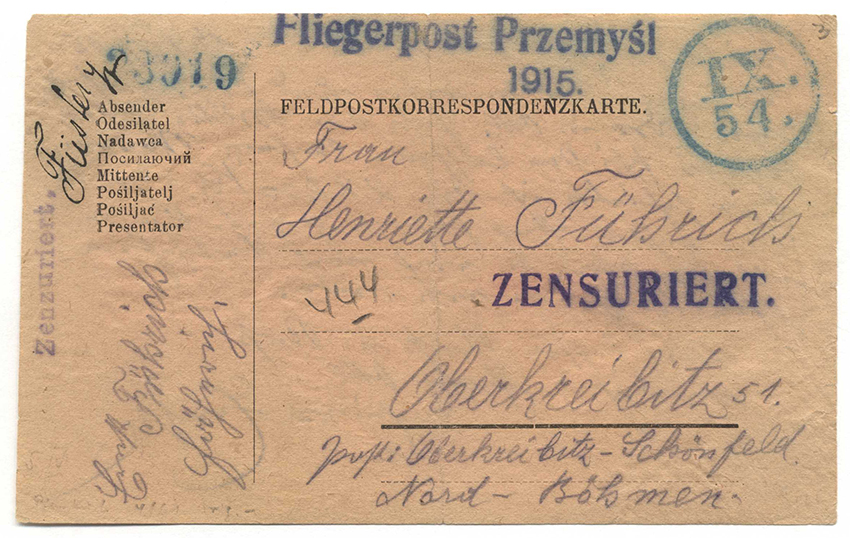 Fliegerpost Przemyśl
1915.
IX.
54.
FELDPOSTKORRESPONDENZKARTE.
Absender
Odesilatel
Nadawca
Посилаючий
Mittente
Pošiljatelj
Pošiljać
Presentator
Zenzuriert.
Führich
Frau
Henriette Führich
444
ZENSURIERT.
Oberkreibitz 51.
Post: Oberkreibitz-Schönfeld.
Nord-Böhmen.